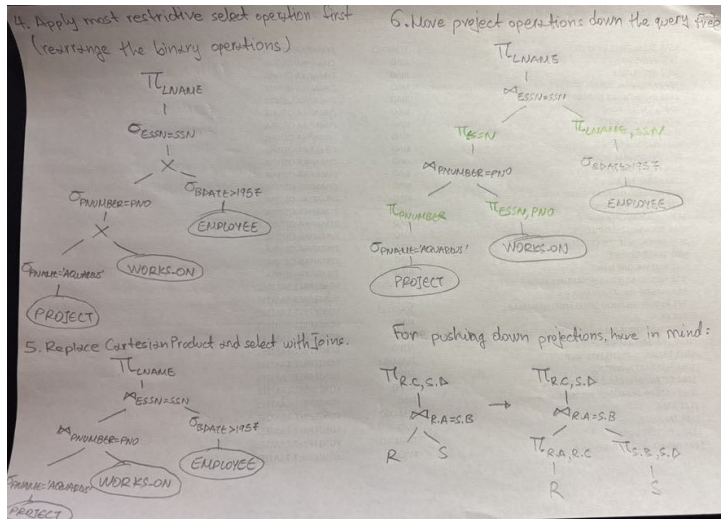 4. Apply most restrictive select operation first
(rearrange the binary operations)
π LNAME
σ ESSN=SSN
×
σ PNUMBER=PNO
σ BDATE>1957
EMPLOYEE
×
σ PNAME='AQUARIUS'
WORKS-ON
PROJECT
5. Replace Cartesian Product and select with Joins.
π LNAME
⋈ ESSN=SSN
⋈ PNUMBER=PNO
σ BDATE>1957
EMPLOYEE
σ PNAME='AQUARIUS'
WORKS-ON
PROJECT
6. Move project operations down the query tree
π LNAME
⋈ ESSN=SSN
π ESSN
π LNAME, SSN
⋈ PNUMBER=PNO
σ BDATE>1957
EMPLOYEE
π PNUMBER
π ESSN, PNO
σ PNAME='AQUARIUS'
WORKS-ON
PROJECT
For pushing down projections, have in mind:
π R.C, S.D
π R.C, S.D
⋈ R.A=S.B
→
⋈ R.A=S.B
R
S
π R.A, R.C
π S.B, S.D
R
S